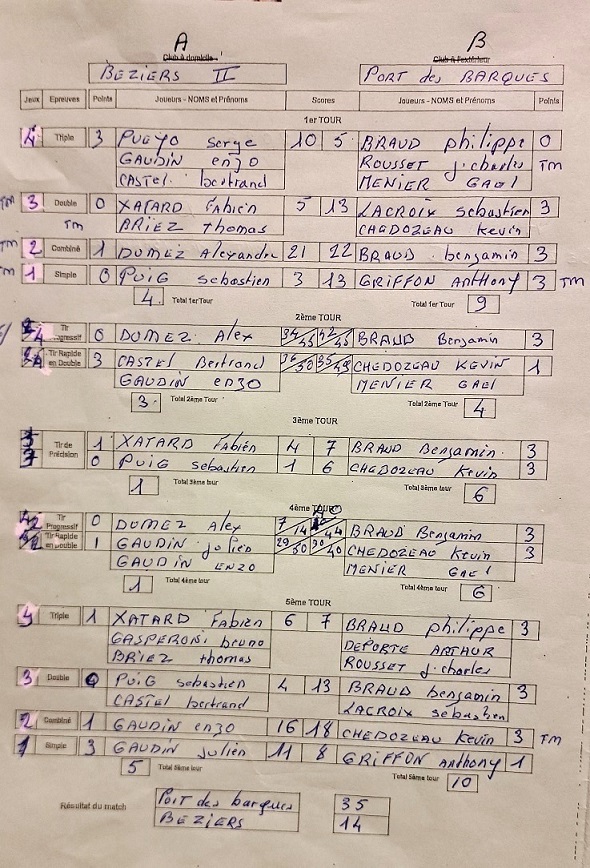 A B
Club à domicile Club à l'extérieur
BEZIERS II PORT des BARQUES
Jeux Epreuves Points Joueurs - NOMS et Prénoms Scores Joueurs - NOMS et Prénoms Points
1er TOUR
4 Triple 3 PUGYO Serge 10 5 BRAUD philippe 0
GAUDIN enzo ROUSSET j.charles TM
CASTEL bertrand MENIER GAEl
TM 3 Double 0 XATARD Fabien 5 13 LACROIX Sebastien 3
TM BRIEZ thomas CHEDOZEAU Kevin
TM 2 Combiné 1 DUMEZ Alexandre 21 22 BRAUD benjamin 3
TM 1 Simple 0 PUIG Sebastien 3 13 GRIFFON Anthony 3 TM
4 Total 1er Tour Total 1er Tour 9
2ème TOUR
Tir Progressif 0 DUMEZ Alex 34/45 BRAUD Benjamin 3
Tir Rapide en Double 3 CASTEL Bertrand 36/50 35/49 CHEDOZEAU KEVIN 1
GAUDIN enzo MENIER GAEl
3 Total 2ème Tour Total 2ème Tour 4
3ème TOUR
Tir de Précision 1 XATARD Fabien 4 7 BRAUD Benjamin 3
0 PUIG Sebastien 1 6 CHEDOZEAU Kevin 3
1 Total 3ème tour Total 3ème tour 6
4ème TOUR
Tir Progressif 0 DUMEZ Alex 7/14 BRAUD Benjamin 3
Tir Rapide en Double 1 GAUDIN julien 29/50 30/40 CHEDOZEAU Kevin 3
GAUDIN ENZO MENIER GAEl
1 Total 4ème tour Total 4ème tour 6
5ème TOUR
4 Triple 1 XATARD Fabien 6 7 BRAUD philippe 3
GASPERONI bruno DEPORTE ARTHUR
BRIEZ thomas ROUSSET j.charles
3 Double 0 PUIG sebastien 4 13 BRAUD benjamin 3
CASTEL bertrand LACROIX sebastien
2 Combiné 1 GAUDIN enzo 16 18 CHEDOZEAU Kevin 3 TM
1 Simple 3 GAUDIN Julien 11 8 GRIFFON Anthony 1
5 Total 5ème tour Total 5ème tour 10
Résultat du match Port des barques 35
BEZIERS 14